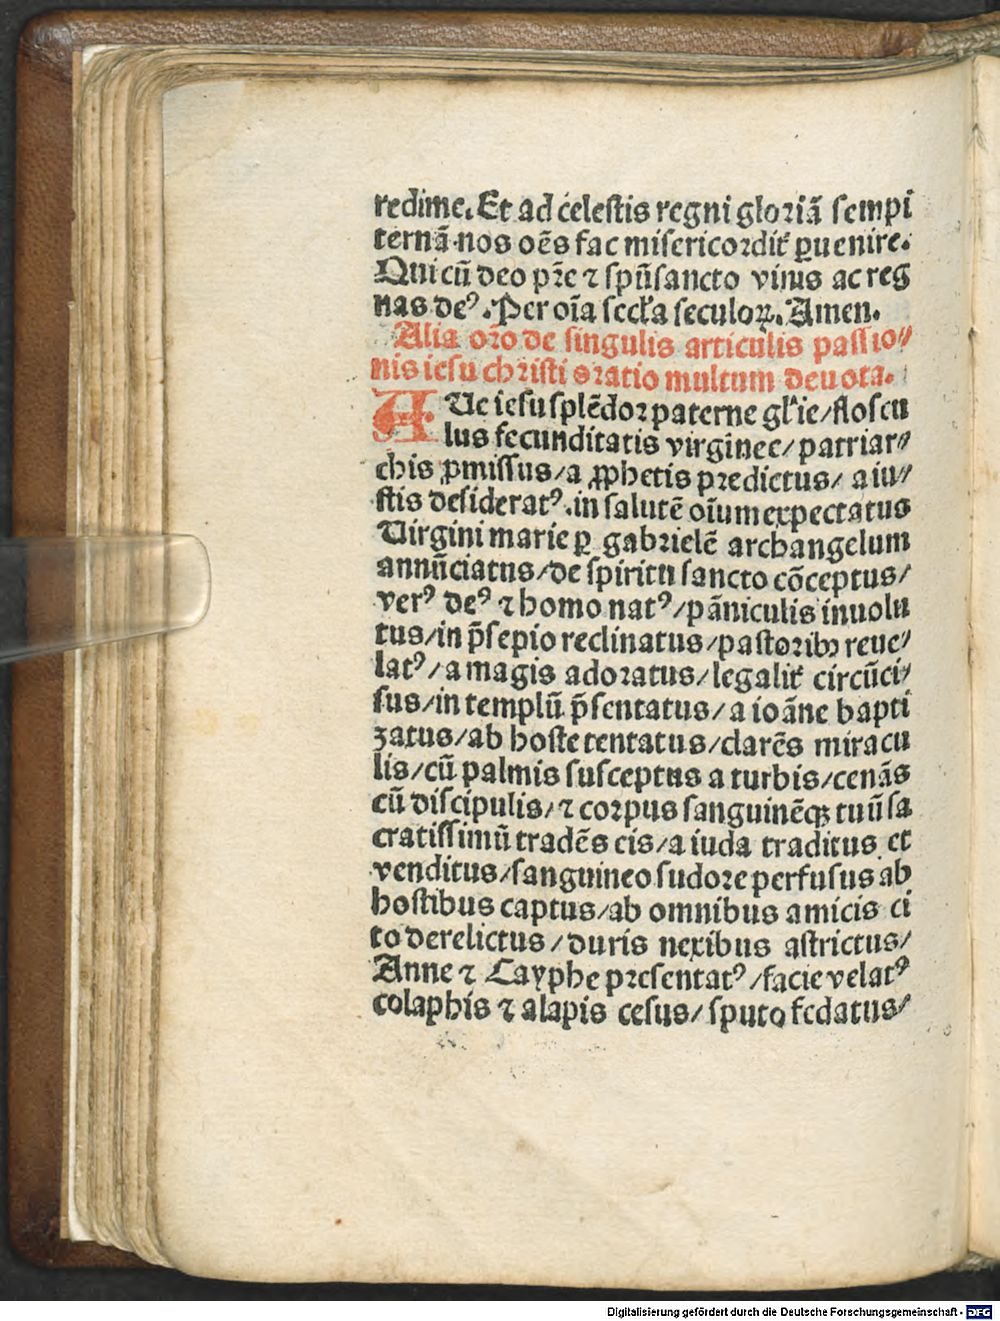 redime. Et ad celestis regni gloriã sempi
ternã nos oẽs fac misericordit᷑ ꝑuenire.
Qui cũ deo pr̃e ⁊ spũsancto viuis ac reg
nas deꝰ. Per oĩa secl̃a seculoꝝ. Amen.
Alia or̃o de singulis articulis passio⸗
nis iesu christi oratio multum deuota.
AUe iesu splẽdor paterne gl̃ie/floscu
lus fecunditatis virginee/patriar⸗
chis ꝓmissus/a ꝓphetis predictus/a iu⸗
stis desideratꝰ.in salutẽ oĩum expectatus
Uirgini marie ꝑ gabrielẽ archangelum
annũciatus/de spiritu sancto cõceptus/
verꝰ deꝰ ⁊ homo natꝰ/pãniculis inuolu
tus/in p̃sepio reclinatus/pastoribꝰ reue⸗
latꝰ/a magis adoratus/legalit᷑ circũci⸗
sus/in templũ p̃sentatus/a ioãne bapti
zatus/ab hoste tentatus/clarẽs miracu
lis/cũ palmis susceptus a turbis/cenãs
cũ discipulis/⁊ corpus sanguinẽqꝫ tuũ sa
cratissimũ tradẽs eis/a iuda traditus et
venditus/sanguineo sudore perfusus ab
hostibus captus/ab omnibus amicis ci
to derelictus/duris nexibus astrictus/
Anne ⁊ Cayphe presentatꝰ/facie velatꝰ
colaphis ⁊ alapis cesus/sputo fedatus/
Digitalisierung gefördert durch die Deutsche Forschungsgemeinschaft - DFG